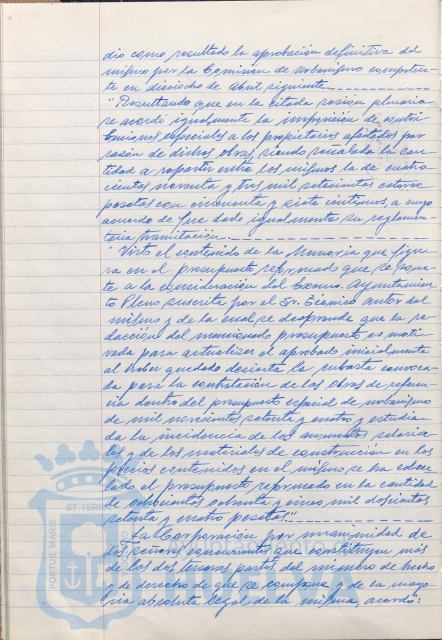 dio como resultado la aprobación definitiva del
mismo por la Comisión de Urbanismo competen-
te en dieciocho de abril siguiente.
"Resultando que en la citada sesión plenaria
se acordó igualmente la imposición de contri-
buciones especiales a los propietarios afectados por
razón de dichas obras, siendo señalada la can-
tidad a repartir entre los mismos la de cuatro-
cientas noventa y tres mil setecientas catorce
pesetas con cincuenta y siete céntimos, a cuyo
acuerdo le fue dado igualmente su reglamen-
taria tramitación.
"Visto el contenido de la Memoria que figu-
ra en el presupuesto reformado que se some-
te a la consideración del Excmo. Ayuntamien-
to Pleno suscrita por el Sr. Técnico autor del
mismo y de la cual se desprende que la re-
dacción del mencionado presupuesto es moti-
vada para actualizar el aprobado inicialmente
al haber quedado desierta la subasta convoca-
da para la contratación de las obras de referen-
cia dentro del presupuesto especial de urbanismo
de mil novecientos setenta y cuatro y estudia-
da la incidencia de los aumentos salaria-
les y de los materiales de construcción en los
precios contenidos en el mismo se ha calcu-
lado el presupuesto reformado en la cantidad
de ochocientas ochenta y cinco mil doscientas
setenta y cuatro pesetas".
La Corporación por unanimidad de
los señores concurrentes que constituyen más
de las dos terceras partes del número de hecho
y de derecho de que se compone y de la mayo-
ría absoluta legal de la misma, acordó:
PORTUS MARIS
ET TERR
HUELVA